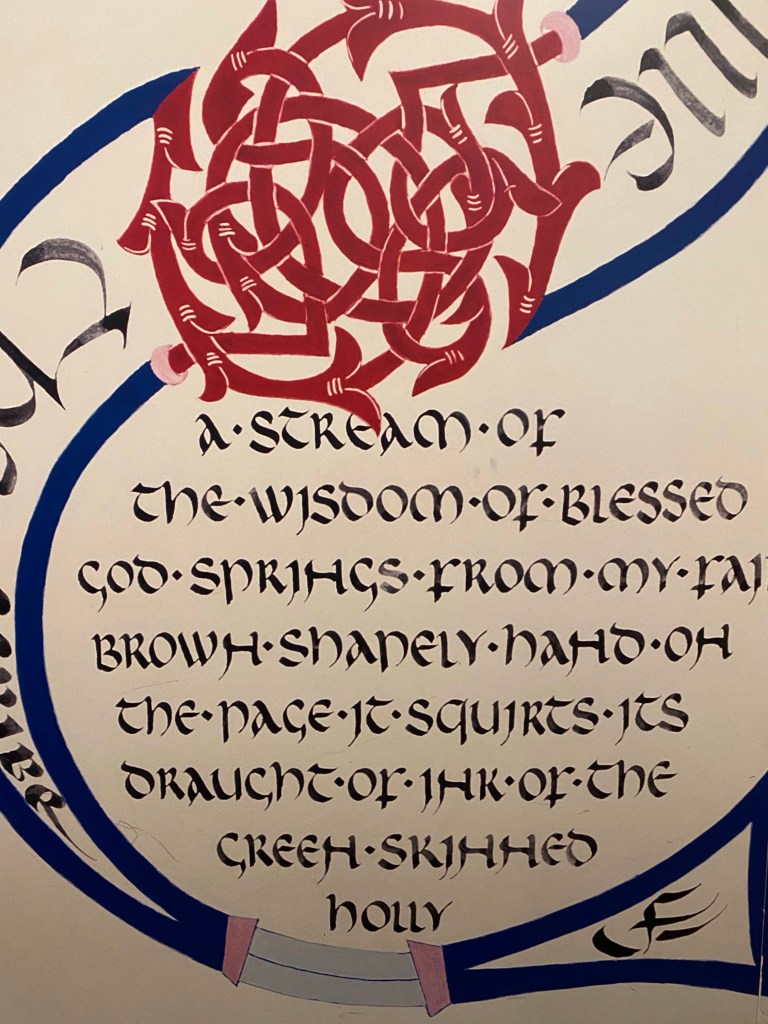 A·STREAM·OF
THE·WISDOM·OF·BLESSED
GOD·SPRINGS·FROM·MY·FAI
BROWN·SHAPELY·HAND·ON
THE·PAGE·IT·SQUIRTS·ITS
DRAUGHT·OF·INK·OF·THE
GREEN·SKINNED
HOLLY